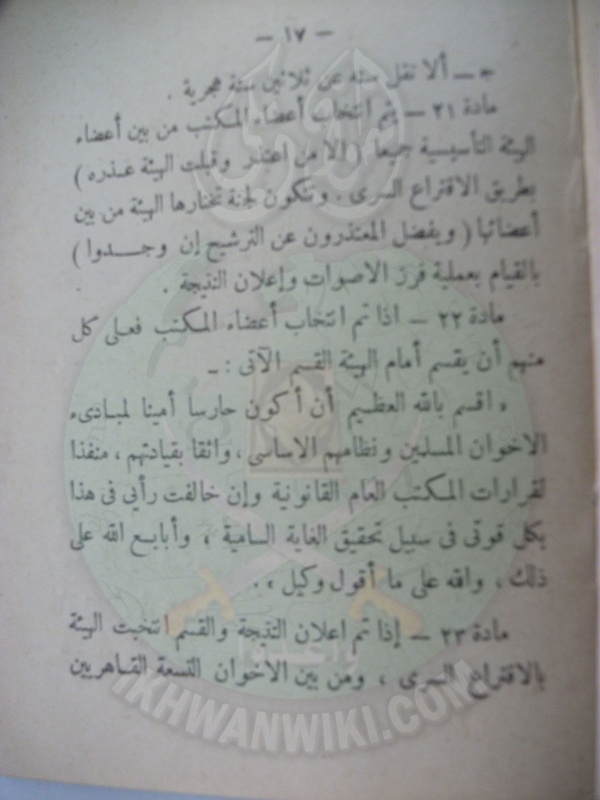 — ١٧ —
ج — ألا تقل سنه عن ثلاثين سنة هجرية .
مادة ٢١ — يتم انتخاب أعضاء المكتب من بين أعضاء
الهيئة التأسيسية جميعا ( الا من اعتذر وقبلت الهيئة عذره )
بطريق الاقتراع السرى . وتتكون لجنة تختارها الهيئة من بين
أعضائها ( ويفضل المعتذرون عن الترشيح إن وجدوا )
بالقيام بعملية فرز الاصوات وإعلان النتيجة .
مادة ٢٢ — اذا تم انتخاب أعضاء المكتب فعلى كل
منهم أن يقسم أمام الهيئة القسم الآتى : —
« اقسم بالله العظيم أن أكون حارسا أمينا لمبادىء
الاخوان المسلمين ونظامهم الاساسى ، واثقا بقيادتهم ، منفذا
لقرارات المكتب العام القانونية وإن خالفت رأيى فى هذا
بكل قوتى فى سبيل تحقيق الغاية السامية ، وأبايع الله على
ذلك ، والله على ما أقول وكيل » .
مادة ٢٣ — إذا تم اعلان النتيجة والقسم انتخبت الهيئة
بالاقتراع السرى ، ومن بين الاخوان التسعة القاهريين
وأعدوا
IKHWANWIKI.COM